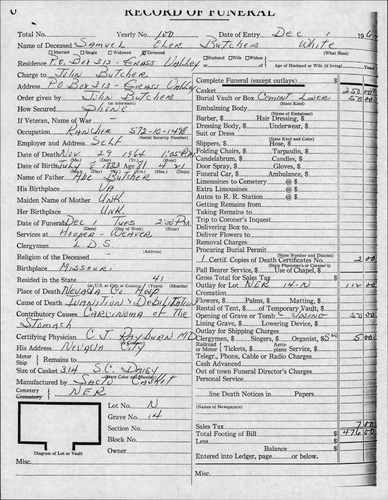 RECORD OF FUNERAL
Total No. Yearly No. 100 Date of Entry Dec 1 196
Name of Deceased Samuel Eler Butcher White
(What Race)
Married Single Widowed Divorced Husband Wife Widow
Residence P.O. Box 313 - Grass Valley
Age of Husband or Wife (if living)
Charge to John Butcher
Address P.O. Box 313 - Grass Valley
Order given by John Butcher
(or informant)
How Secured Phone
If Veteran, Name of War
Occupation Rancher 572-10-1498
(Social Security)
Employer and Address Self
Date of Death Nov 29 1964 1:05 A.M.
Date of Birth July 8 1883 Age 81 4 21
Name of Father Abe Butcher
His Birthplace VA
Maiden Name of Mother UNK
Her Birthplace UNK
Date of Funeral Dec 1 Tues 2:30 P.M.
Services at Hooper-Weaver
(Address)
Clergyman L.D.S.
Religion of the Deceased
Birthplace Missouri
Resided in the State 41
Place of Death Nevada Co Hosp
Cause of Death Inanition & Debilitation
Contributory Causes Carcinoma of The
Stomach
Certifying Physician C J
His Address Nevada City
Motor Ship Remains to
Size of Casket 314 S.C. Daisy
Manufactured by Sacto Casket
Cemetery Crematory NER
Lot No. N
Grave No. 14
Section No.
Block No.
Owner
Diagram of Lot or Vault
Misc.
Complete Funeral (except outlays) $ 250 00
Burial Vault or Box Cement Liner 50 00
(State Kind)
Embalming Body
(Name of Embalmer)
Barber, $ Hair Dressing, $
Dressing Body, $ Underwear, $
Suit or Dress
(State Kind and Color)
Slippers, $ Hose, $
Folding Chairs, $ Tarpaulin, $
Candelabrum, $ Candles, $
Door Spray, $ Gloves, $
Funeral Car, $ Ambulance, $
Limousines to Cemetery @ $
Extra Limousines @ $
Autos to R. R. Station @ $
Getting Remains from
Taking Remains to
Trip to Coroner's Inquest
Delivering Box to
Deliver Flowers to
Removal Charges
Procuring Burial Permit
(State Number and District)
1 Certif. Copies of Death Certificates No. 2 00
(State Physician's or Coroner's)
Pall Bearer Service, $ Use of Chapel, $
Gross Total for Sales Tax $
Outlay for Lot NER 14-N $ 112 00
Flowers, $ Palms, $ Matting, $
Rental of Tent, $ of Temporary Vault, $
Opening of Grave or Tomb 50 00
Lining Grave, $ Lowering Device, $
Outlay for Shipping Charges
Clergyman, $ Singers, $ Organist, $ 5 00
Railroad or Motor Tickets, $ Aeroplane Service, $
Telegr., Phone, Cable or Radio Charges
Cash Advanced
Out of town Funeral Director's Charges
Personal Service
line Death Notices in Papers
(Names of Newspapers)
Sales Tax
Total Footing of Bill $ 476 00
Less $
Balance $
Entered into Ledger, page or below.
Misc.